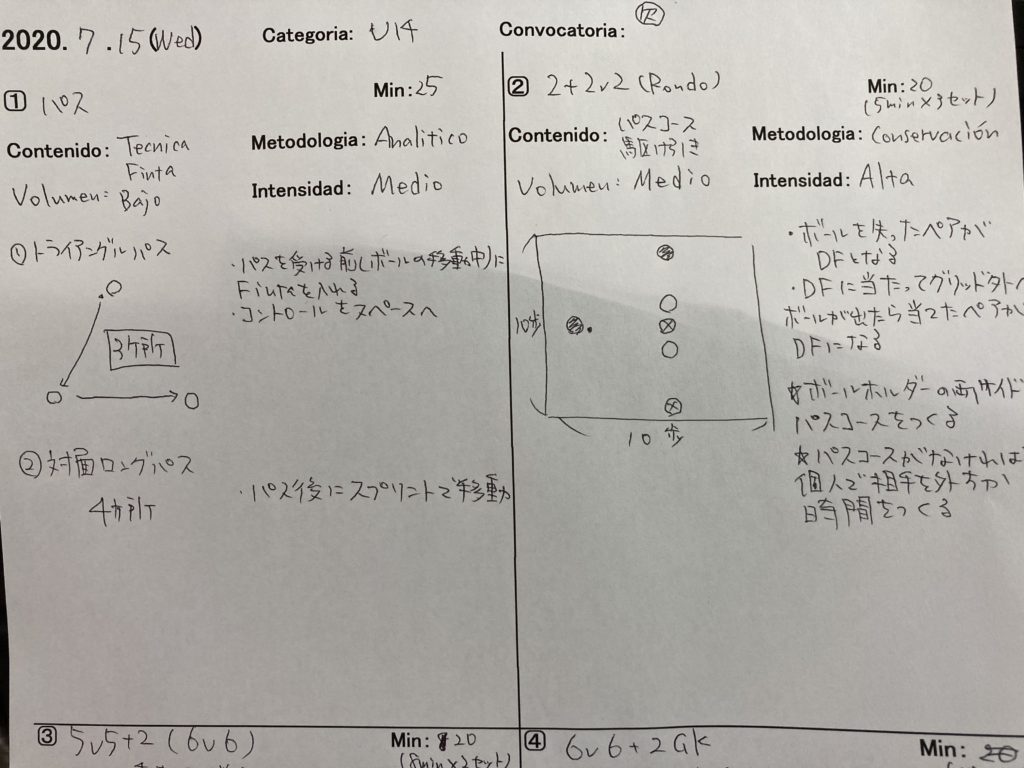 2020. 7.15(Wed) Categoria: U14 Convocatoria:
1 パス Min:25
Contenido: Tecnica
Finta
Metodologia: Analitico
Volumen: Bajo
Intensidad: Medio
①トライアングルパス
3ヶ所
・パスを受ける前(ボールの移動中)に
Fintaを入れる
・コントロールをスペースへ
②対面ロングパス
4ヶ所
・パス後にスプリントで移動
2 2+2v2(Rondo) Min:20
(5min×3セット)
Contenido: パスコース
駆け引き
Metodologia: Conservación
Volumen: Medio
Intensidad: Alta
10歩
10歩
・ボールを失ったペアが
DFとなる
・DFに当たってグリッド外へ
ボールが出たら当てたペアが
DFになる
☆ボールホルダーの両サイド
パスコースをつくる
☆パスコースがなければ
個人で相手を外すか
時間をつくる
3 5v5+2(6v6) Min:20
(8min×2セット)
4 6v6+2GK Min: 20